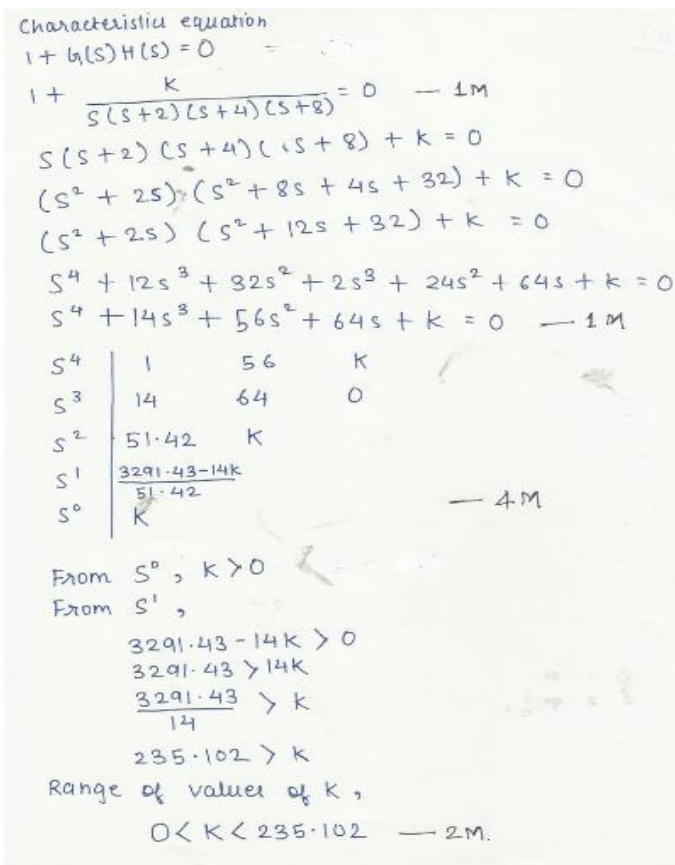 Characteristic equation
1 + G(S) H(S) = 0
1 + K / S(S+2)(S+4)(S+8) = 0 — 1M
S(S+2) (S+4) (S+8) + K = 0
(S² + 2S) (S² + 8S + 4S + 32) + K = 0
(S² + 2S) (S² + 12S + 32) + K = 0
S⁴ + 12S³ + 32S² + 2S³ + 24S² + 64S + K = 0
S⁴ + 14S³ + 56S² + 64S + K = 0 — 1M
S⁴ | 1 56 K
S³ | 14 64 0
S² | 51.42 K
S¹ | 3291.43-14K / 51.42
S⁰ | K — 4M
From S⁰, K > 0
From S¹,
3291.43 - 14K > 0
3291.43 > 14K
3291.43 / 14 > K
235.102 > K
Range of values of K,
0 < K < 235.102 — 2M.